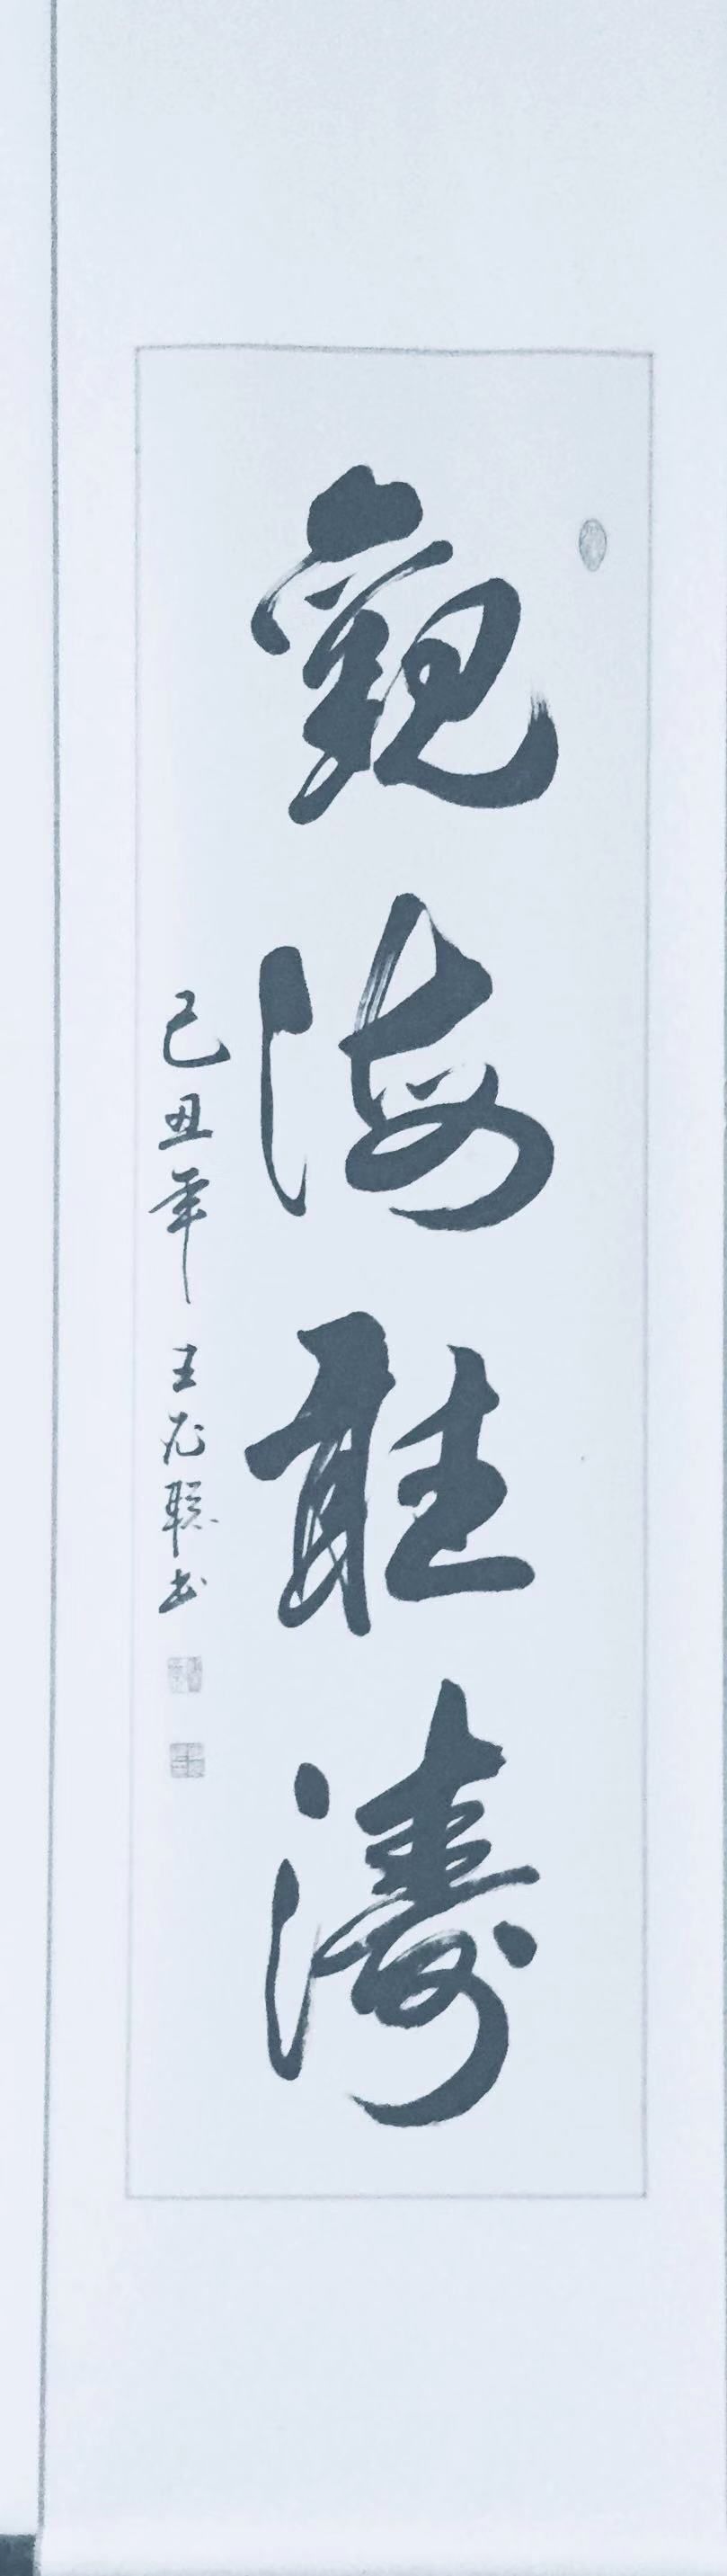 觀海聽濤
己丑年 王 聪书